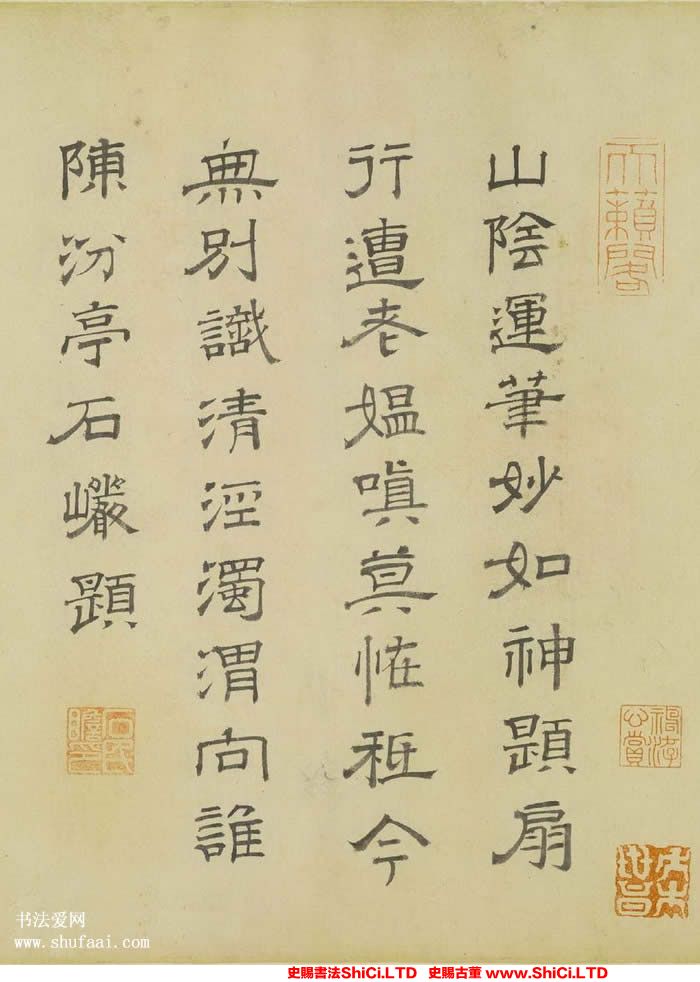 天籟閣
山陰運筆妙如神題扇
行遭老媼嗔莫恠秖今
無別識清涇濁渭向誰
陳汾亭石巖題
书法爱网
www.shufaai.com
史賜書法ShiCi.LTD 史賜古董 www.ShiCi.LTD